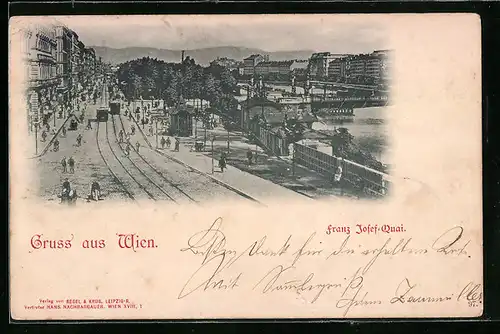 Franz Josef-Quai.
Gruss aus Wien.
Besten Dank für die erhaltene Karte.
Mit
Verlag von REGEL & KRUG, LEIPZIG-R.
Vertreter HANS NACHBARGAUER, WIEN XVIII, 1
97.